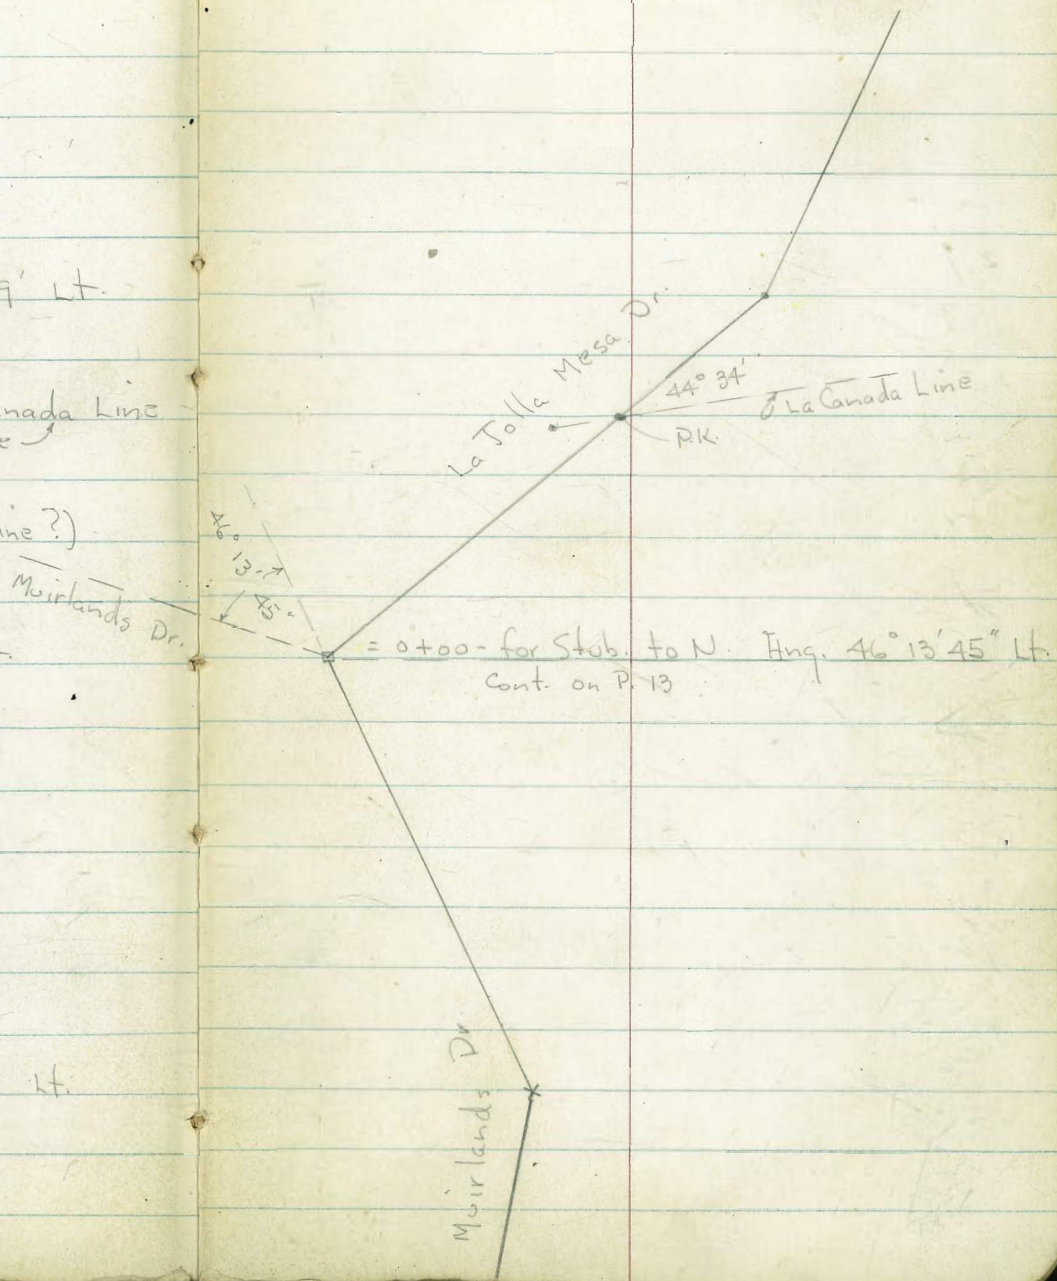 9' Lt.
nada Line
e
ine ?)
Muirlands Dr.
Lt.
La Jolla Mesa Dr.
44° 34'
La Canada Line
P.K.
46°
13-
45"
= 0+00 - for Stub. to N. Ang. 46° 13' 45" Lt.
Cont. on P. 13
Muirlands Dr